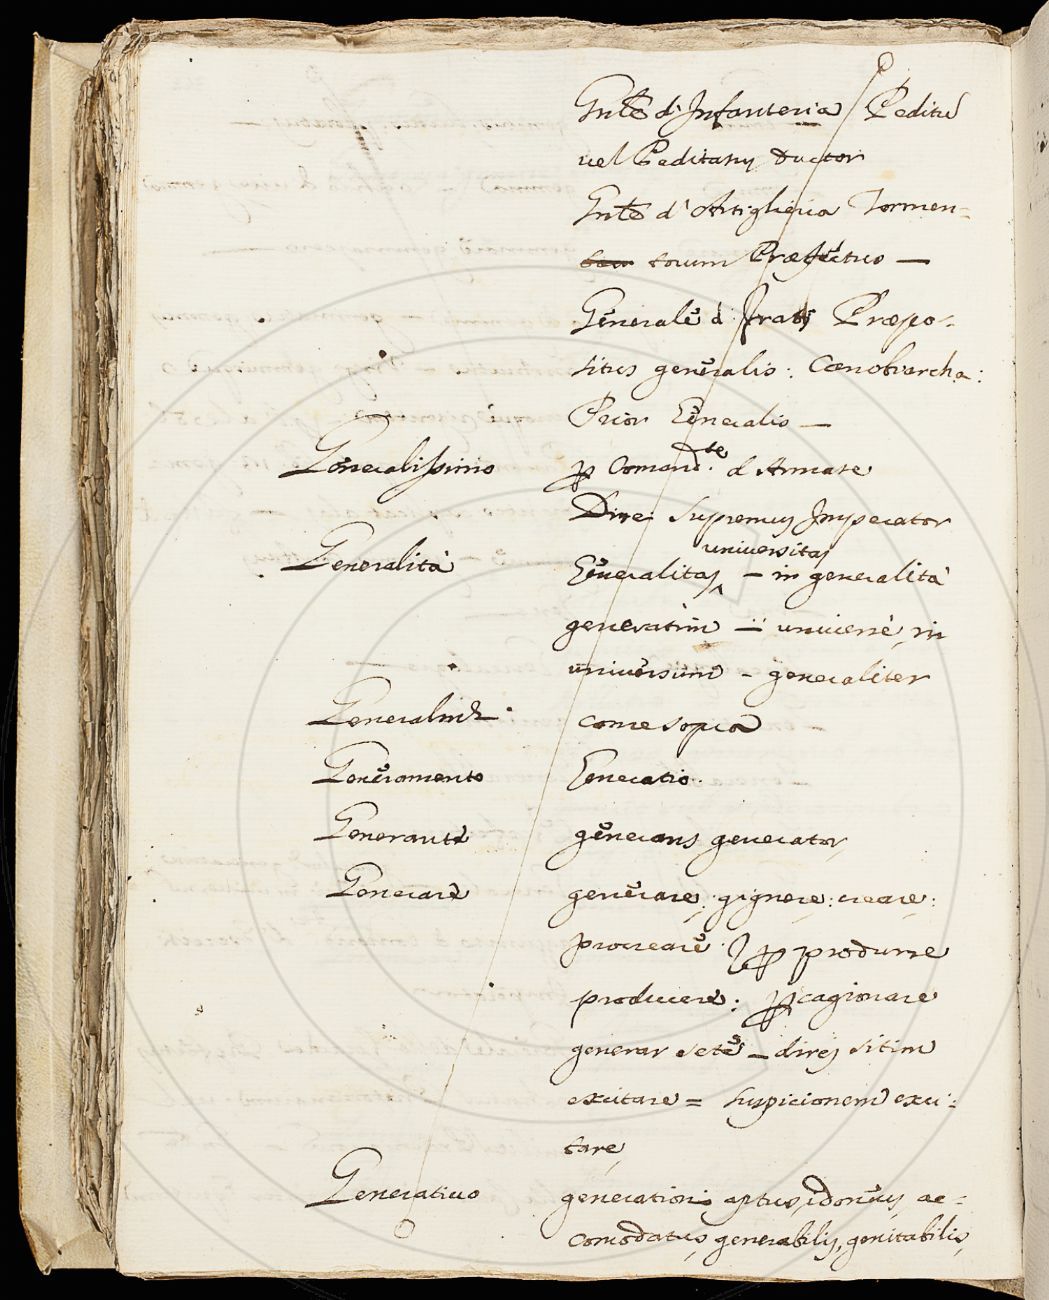 Gnle di Infanteria Peditū
vel Peditarij ductor
Gnle d'Artiglieria Tormen=
torum Præfectus —
Generale d Frati Præpo-
situs generalis: Cœnobiarcha:
Prior Generalis —
Generalissimo p Comand.te d Armate
Direi Supremus Imperator
universitas
Generalità Generalitas — in generalità
generatim — universè, in
universum - generaliter
Generalm. come sopra
Generamento Generatio.
Generante generans generator
Generare generare: gignere: creare:
procreare p produrre
producere: p cagionare
generar sete — direi sitim
excitare = suspicionem exci:
tare
Generativo generationi aptus, idoneus, ac=
comodatus, generabilis, genitabilis,